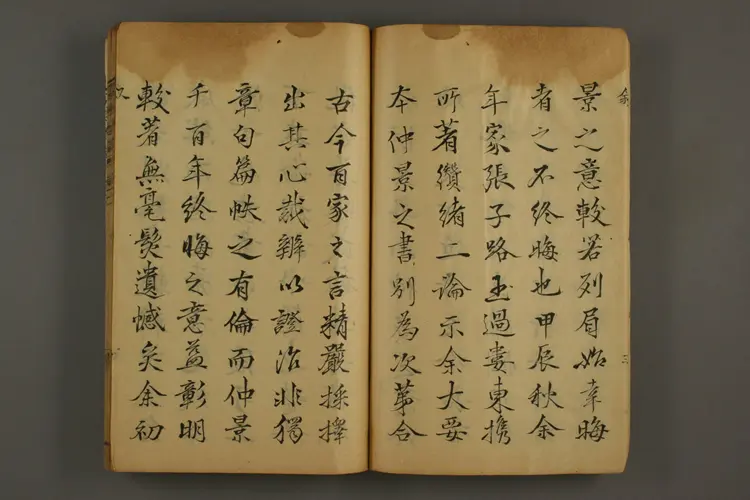 景之意較若列眉始幸晦
者之不終晦也甲辰秋余
年家張子路玉過婁東携
所著纘緒二論示余大要
本仲景之書別為次第合
古今百家之言精嚴採擇
出其心裁辨以證治非獨
章句篇帙之有倫而仲景
千百年終晦之意益彰明
較著無毫髮遺憾矣余初